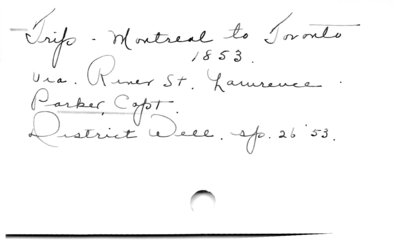 Trip - Montreal to Toronto
1853.
via. River St. Lawrence.
Parker, Capt.
District Well. sp. 26 '53.